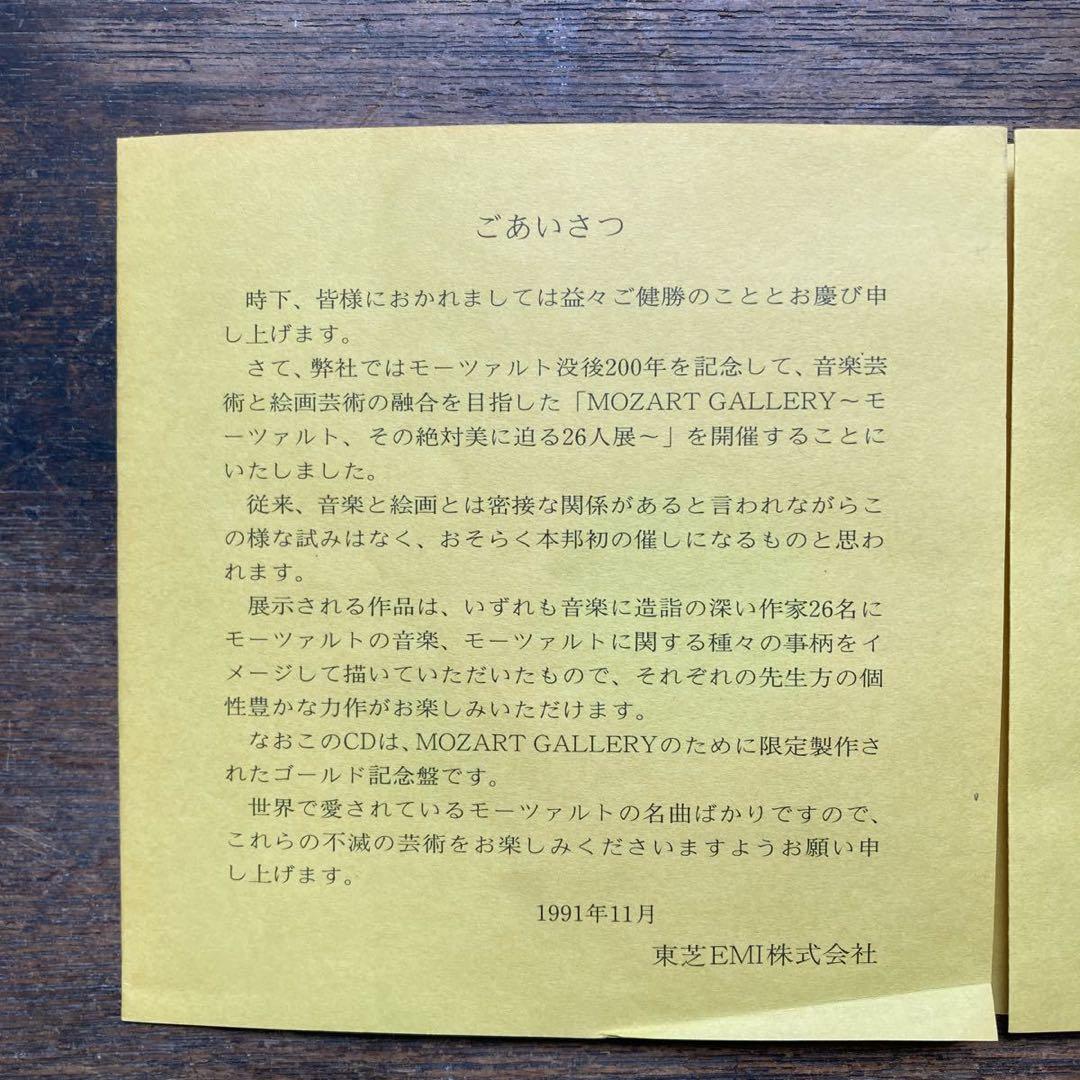 ごあいさつ
時下、皆様におかれましては益々ご健勝のこととお慶び申
し上げます。
さて、弊社ではモーツァルト没後200年を記念して、音楽芸
術と絵画芸術の融合を目指した「MOZART GALLERY～モ
ーツァルト、その絶対美に迫る26人展～」を開催することに
いたしました。
従来、音楽と絵画とは密接な関係があると言われながらこ
の様な試みはなく、おそらく本邦初の催しになるものと思わ
れます。
展示される作品は、いずれも音楽に造詣の深い作家26名に
モーツァルトの音楽、モーツァルトに関する種々の事柄をイ
メージして描いていただいたもので、それぞれの先生方の個
性豊かな力作がお楽しみいただけます。
なおこのCDは、MOZART GALLERYのために限定製作さ
れたゴールド記念盤です。
世界で愛されているモーツァルトの名曲ばかりですので、
これらの不滅の芸術をお楽しみくださいますようお願い申
し上げます。
1991年11月
東芝EMI株式会社